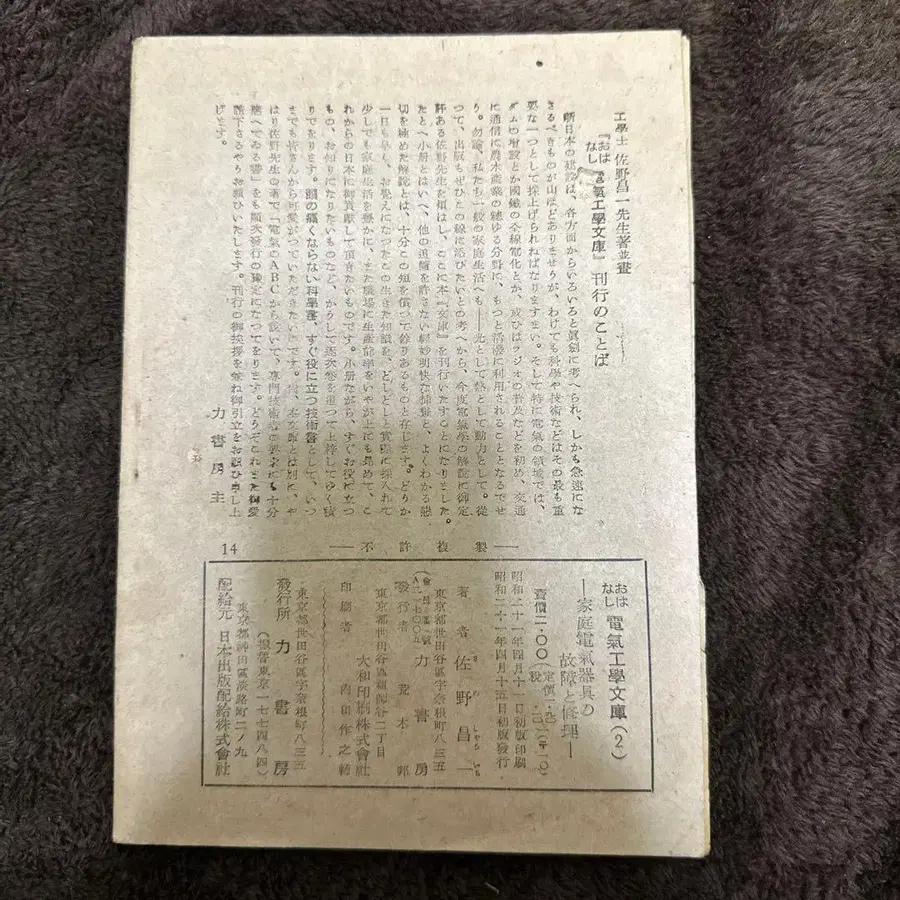 工學士 佐野昌一先生著並畫
『おはなし 電氣工學文庫』刊行のことば
新日本の建設は、各方面からいろいろと眞劍に考へられ、しかも急速にな
さるべきものが山ほどありませうが、わけても科學や技術などはその最も重
要な一つとして採上げられねばなりますまい。そして特に電氣の領域では、
ダムの增設とか國鐵の全線電化とか、或ひはラジオの普及などを初め、交通
に通信に農木產業の總ゆる分野に、もつと活潑に利用されることとなるでせ
り。勿論、私たち一般の家庭生活へも――光として熱として動力として。從
つて、出版もぜひこの線に添ひたいとの考へから、今度電氣學の解說に御定
評ある佐野先生を煩はし、ここに本『文庫』を刊行いたすことになりました。
たとへ小册とはいへ、他の追隨を許さない輕妙明快な揷畫と、よくわかる懇
切を極めた解說とは、十分この短を償つて餘りあるものと存じます。どうか
一日も早く、お覺えになつたこの生きた知識を、どしどし實際に採入れて
少しでも家庭生活を豐かに、また職場に生產能率をいやが上にも高めて、こ
れからの日本に御貢獻して頂きたいものです。小册ながら、すぐお役に立つ
もの、お知りになりたいものなど、かうして逐次卷を追つて上梓してゆく積
りでをります。頭の痛くならない科學書、すぐ役に立つ技術書として、いつ
までも皆さんから可愛がつていただきたいのです。尙、本文庫とは別に、や
はり佐野先生の著で「電氣のABCから說いて、專門技術者の要求にも十分
應へてゐる書」をも順次發行の豫定になつてをります。どうぞこれまた御愛
讀下さるやうお願ひいたします。刊行の御挨拶を兼ね御引立をお願ひ申し上
げます。
力書房主
14
――不許複製――
おはなし 電氣工學文庫(2)
―家庭電氣器具の
故障と修理―
賣價二・〇〇
昭和二十一年四月十日初版印刷
昭和二十一年四月十五日初版發行
著者 佐野昌一
東京都世田谷區宇奈根町八三五
力書房
發行者 荒木
東京都世田谷區
二丁目
大和印刷株式會社
印刷者 內田作之輔
東京都世田谷區宇奈根町八三五
發行所 力書房
(振替東京一七七四八四)
東京都神田區淡路町二ノ九
配給元 日本出版配給株式會社